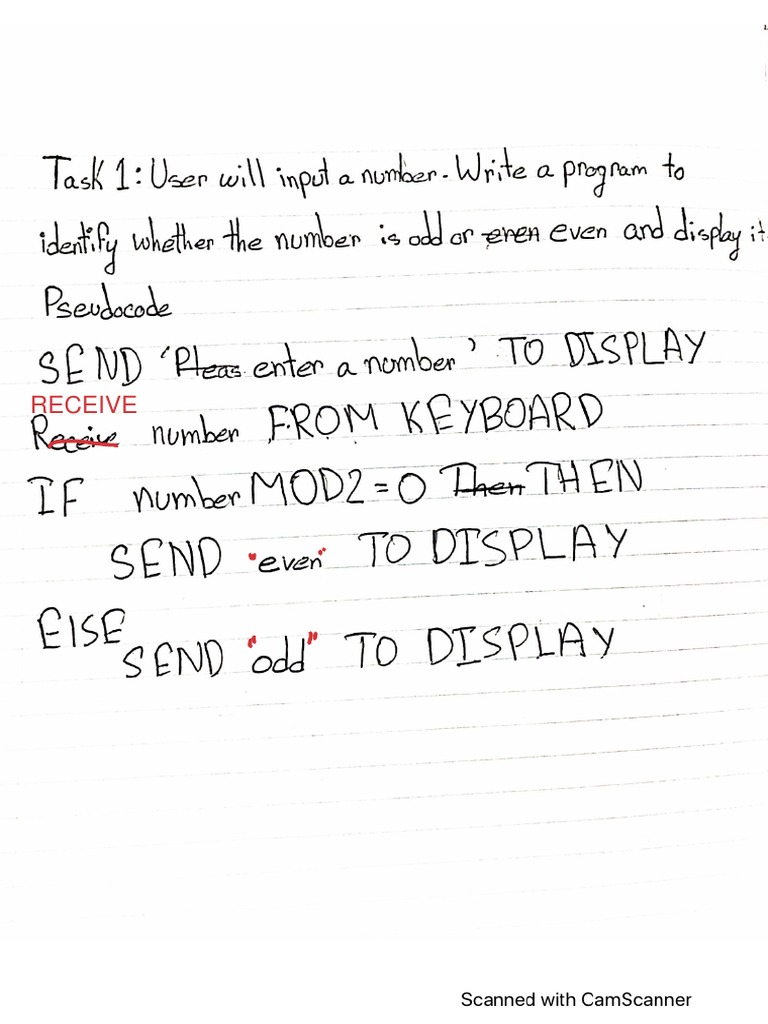 Task 1: User will input a number. Write a program to
identify whether the number is odd or even even and display it
Pseudocode
SEND 'Pleas enter a number' TO DISPLAY
RECEIVE
Receive number FROM KEYBOARD
IF number MOD2 = 0 Then THEN
SEND "even" TO DISPLAY
ElSE
SEND "odd" TO DISPLAY
Scanned with CamScanner